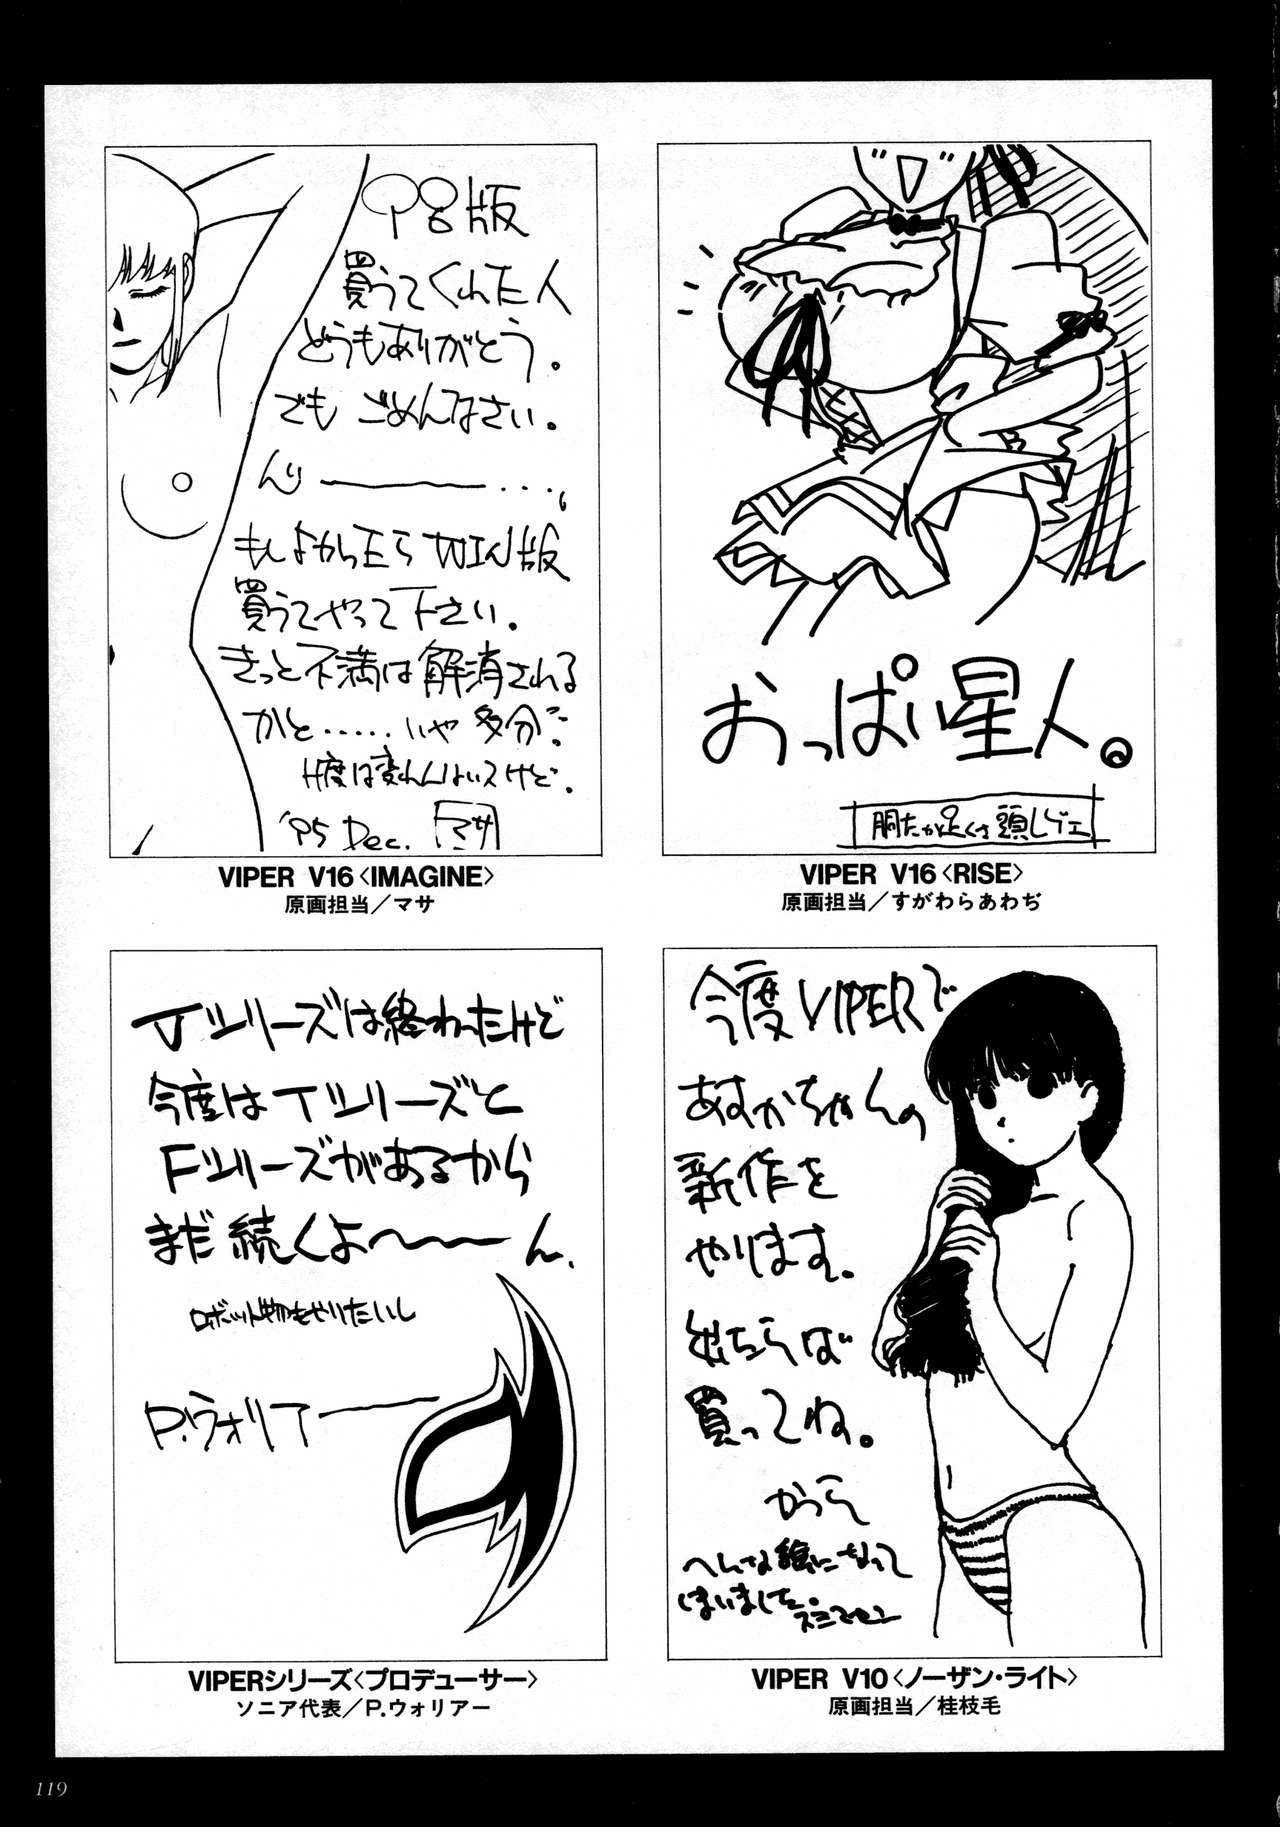 98版
買うてくれた人
どうもありがとう。
でも ごめんなさい。
もしよかったら WIN版
買うてやって下さい。
きっと不満は解消される
かと.....いや 多分...。
H度は変わんないスけど。
'95 Dec. マサ
VIPER V16〈IMAGINE〉
原画担当／マサ
おっぱい星人。
VIPER V16〈RISE〉
原画担当／すがわらあわぢ
Jシリーズは終わったけど
今度はTシリーズと
Fシリーズがあるから
まだ続くよ〜〜ん、
ロボット物もやりたいし
P.ウォリアー
VIPERシリーズ〈プロデューサー〉
ソニア代表／P.ウォリアー
今度VIPERで
あすかちゃんの
新作を
やります。
出たらば
買ってね。
かつら
へんな絵になって
しまいました。スミマセン
VIPER V10〈ノーザン・ライト〉
原画担当／桂枝毛
119